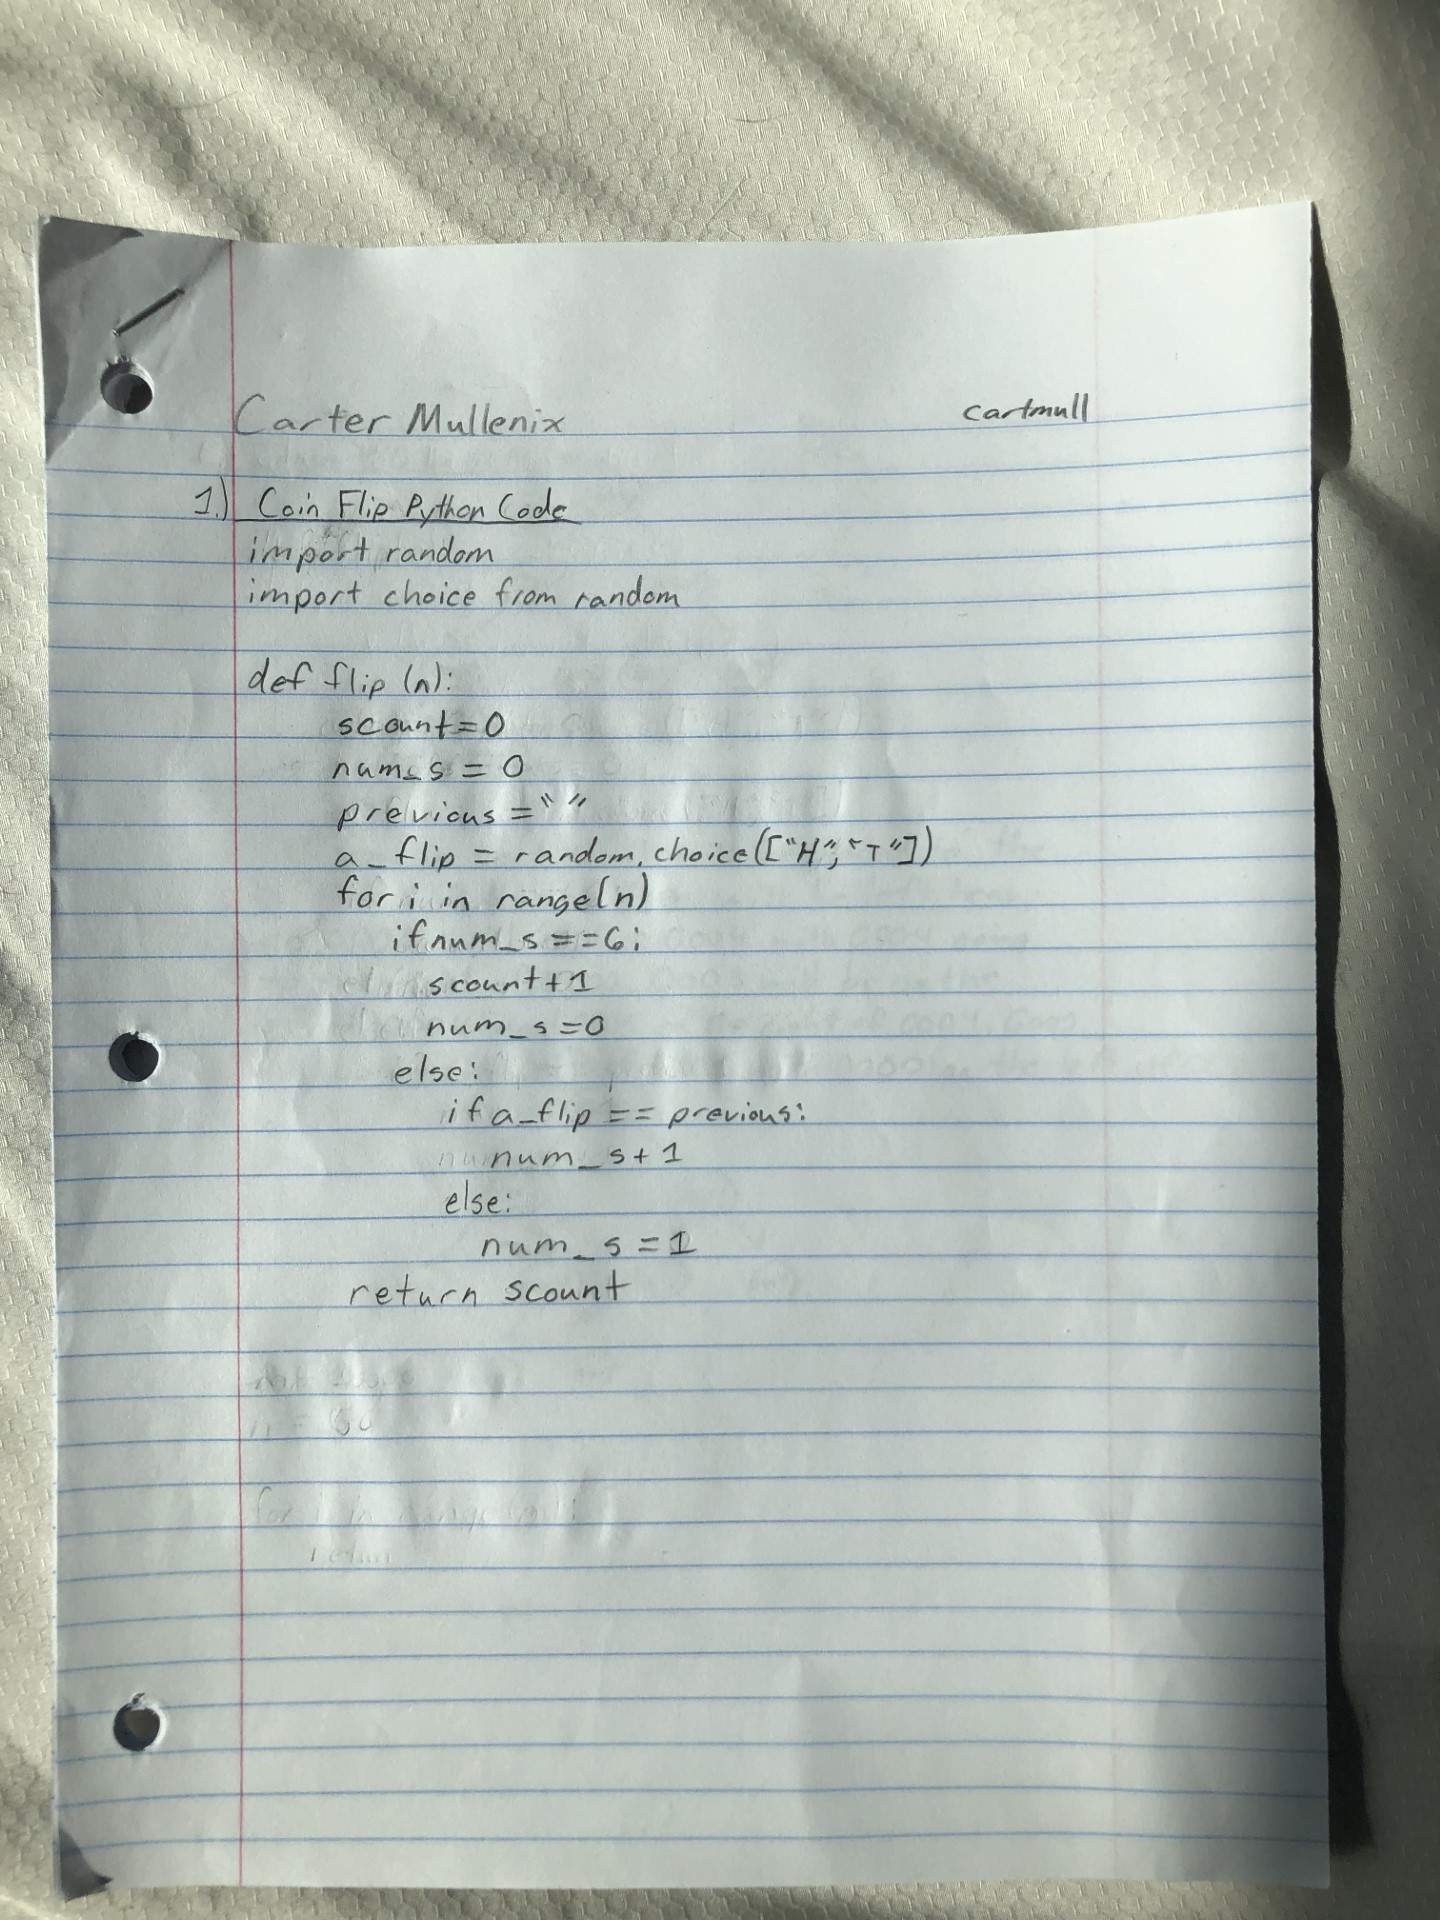 Carter Mullenix cartmull
1.) Coin Flip Python Code
import random
import choice from random
def flip (n):
scount=0
num_s = 0
previous = " "
a_flip = random.choice(["H","T"])
for i in range(n)
if num_s ==6:
scount+1
num_s=0
else:
if a_flip == previous:
num_s+1
else:
num_s=1
return scount